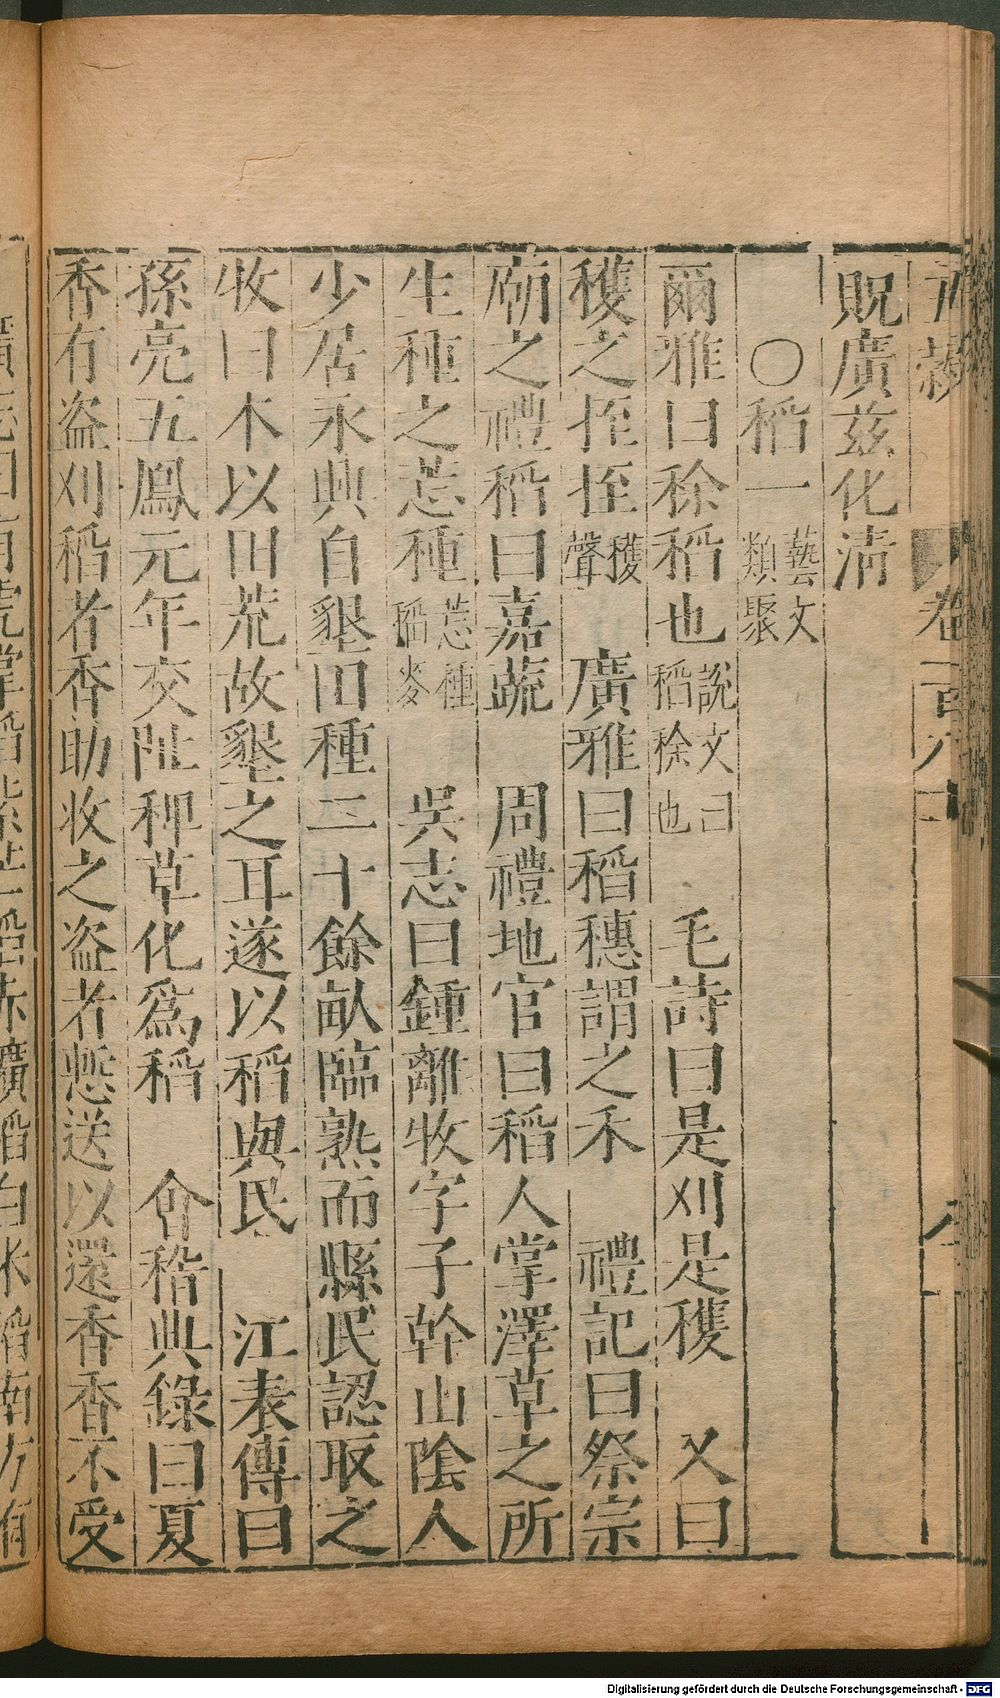 五穀 卷一百八十 八
貺廣兹化清
○稻一 藝文類聚
爾雅曰稌稻也 說文曰稻稌也 毛詩曰是刈是穫 又曰
穫之挃挃 穫聲 廣雅曰稻穗謂之禾 禮記曰祭宗
廟之禮稻曰嘉蔬 周禮地官曰稻人掌澤草之所
生種之芒種 芒種稻麥 吳志曰鍾離牧字子幹山陰人
少居永興自墾田種二十餘畝臨熟而縣民認取之
牧曰本以田荒故墾之耳遂以稻與民 江表傳曰
孫亮五鳳元年交阯稗草化爲稻 會稽典錄曰夏
香有盜刈稻者香助收之盜者慙送以還香香不受
Digitalisierung gefördert durch die Deutsche Forschungsgemeinschaft - DFG